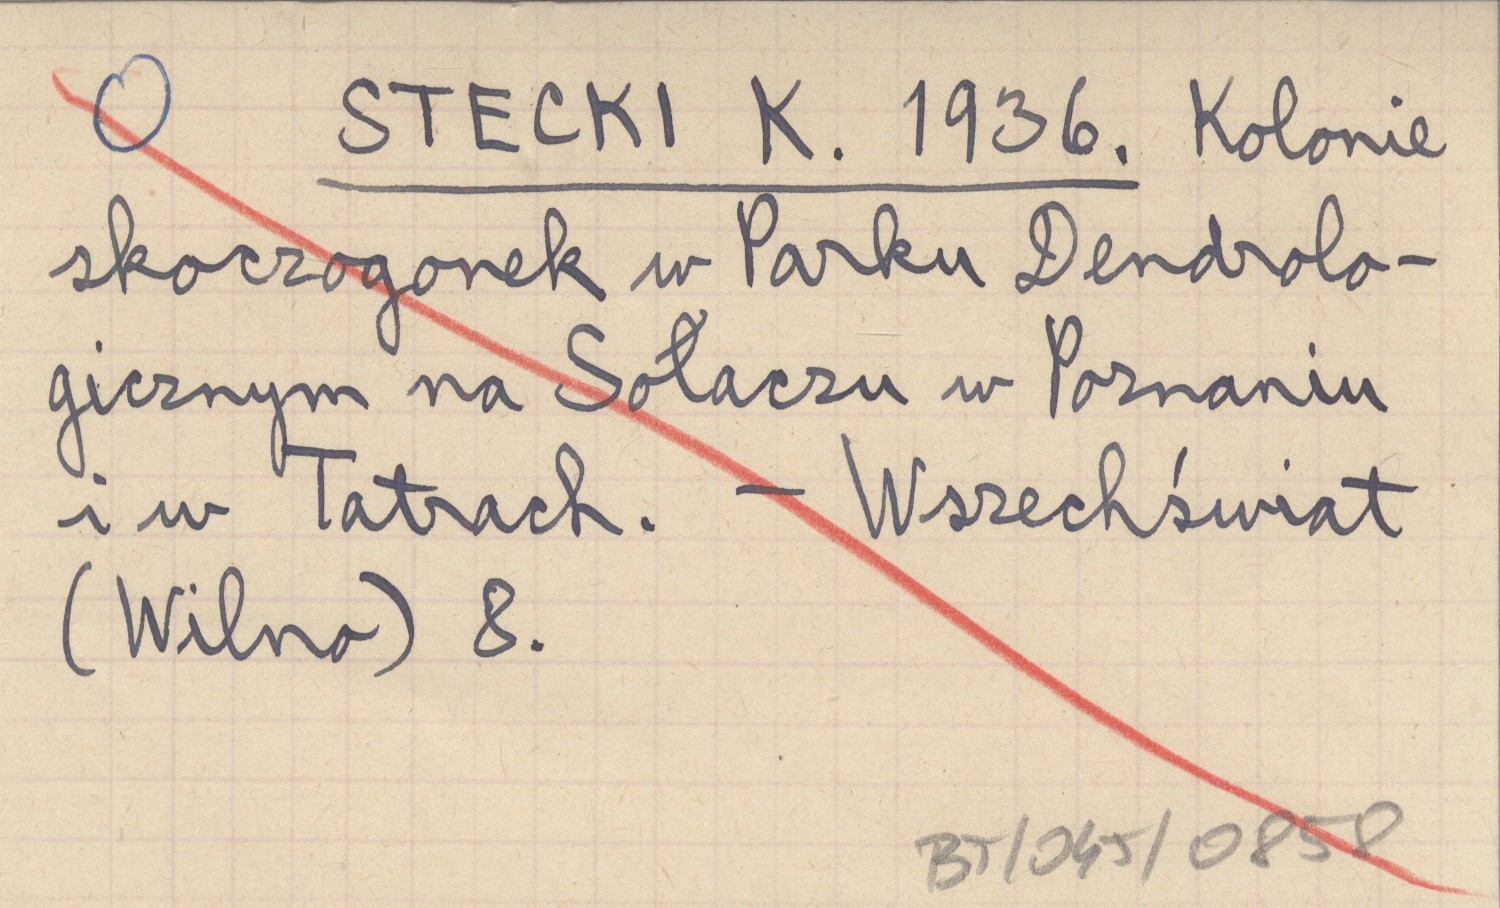 STECKI K. 1936. Kolonie
skoczogonek w Parku Dendrolo-
gicznym na Sołaczu w Poznaniu
i w Tatrach. — Wszechświat
(Wilno) 8.
BT/045/0858